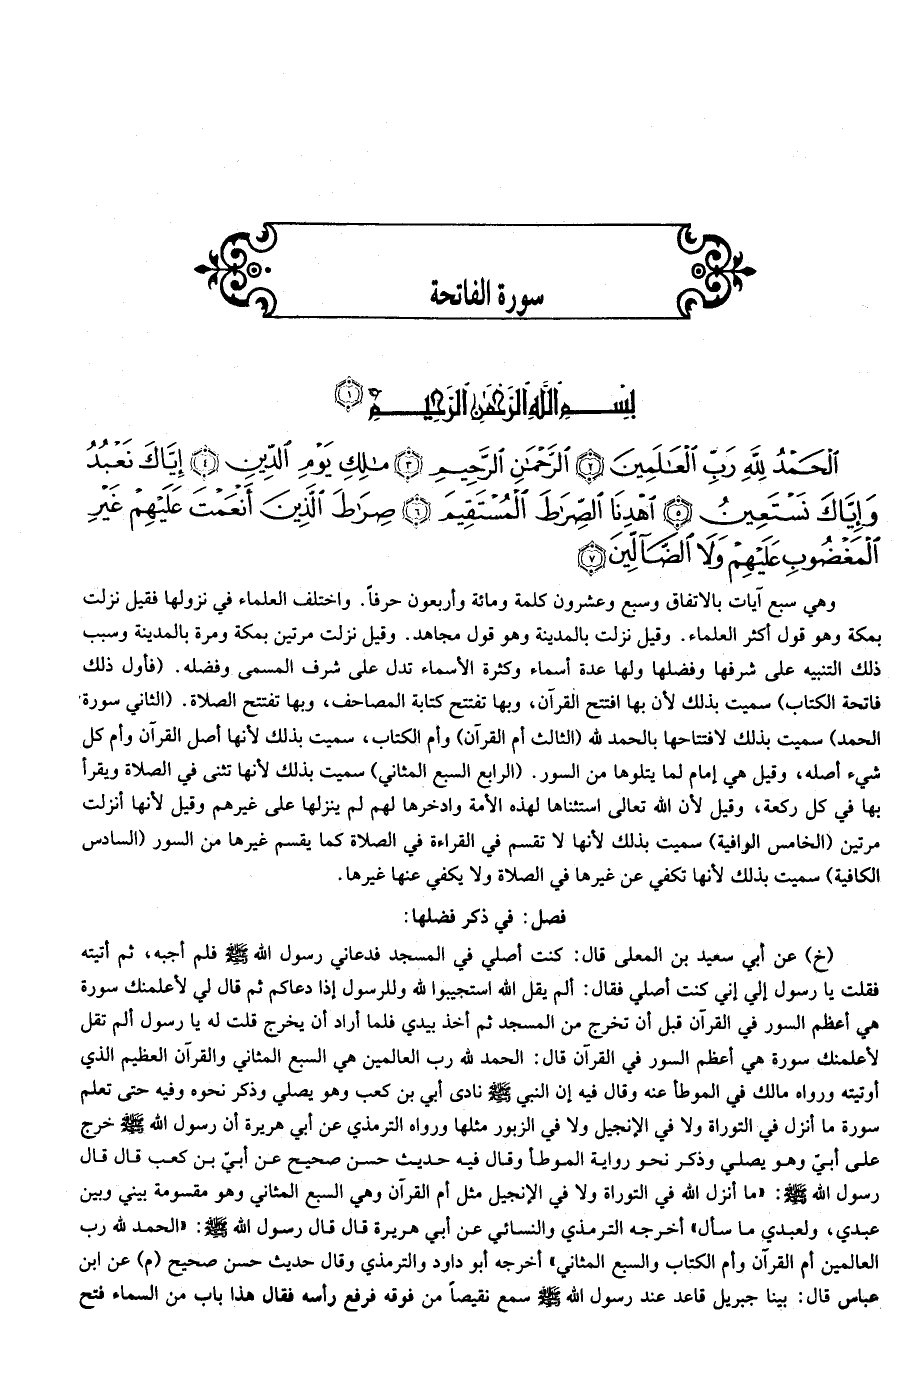 سورة الفاتحة
بِسْمِ اللَّهِ الرَّحْمَٰنِ الرَّحِيمِ ١
الْحَمْدُ لِلَّهِ رَبِّ الْعَالَمِينَ ٢ الرَّحْمَٰنِ الرَّحِيمِ ٣ مَالِكِ يَوْمِ الدِّينِ ٤ إِيَّاكَ نَعْبُدُ
وَإِيَّاكَ نَسْتَعِينُ ٥ اهْدِنَا الصِّرَاطَ الْمُسْتَقِيمَ ٦ صِرَاطَ الَّذِينَ أَنْعَمْتَ عَلَيْهِمْ غَيْرِ
الْمَغْضُوبِ عَلَيْهِمْ وَلَا الضَّالِّينَ ٧
وهي سبع آيات بالاتفاق وسبع وعشرون كلمة ومائة وأربعون حرفاً. واختلف العلماء في نزولها فقيل نزلت
بمكة وهو قول أكثر العلماء. وقيل نزلت بالمدينة وهو قول مجاهد. وقيل نزلت مرتين بمكة ومرة بالمدينة وسبب
ذلك التنبيه على شرفها وفضلها ولها عدة أسماء وكثرة الأسماء تدل على شرف المسمى وفضله. (فأول ذلك
فاتحة الكتاب) سميت بذلك لأن بها افتتح القرآن، وبها تفتتح كتابة المصاحف، وبها تفتتح الصلاة. (الثاني سورة
الحمد) سميت بذلك لافتتاحها بالحمد لله (الثالث أم القرآن) وأم الكتاب، سميت بذلك لأنها أصل القرآن وأم كل
شيء أصله، وقيل هي إمام لما يتلوها من السور. (الرابع السبع المثاني) سميت بذلك لأنها تثنى في الصلاة ويقرأ
بها في كل ركعة، وقيل لأن الله تعالى استثناها لهذه الأمة وادخرها لهم لم ينزلها على غيرهم وقيل لأنها أنزلت
مرتين (الخامس الوافية) سميت بذلك لأنها لا تقسم في القراءة في الصلاة كما يقسم غيرها من السور (السادس
الكافية) سميت بذلك لأنها تكفي عن غيرها في الصلاة ولا يكفي عنها غيرها.
فصل: في ذكر فضلها:
(خ) عن أبي سعيد بن المعلى قال: كنت أصلي في المسجد فدعاني رسول الله ﷺ فلم أجبه، ثم أتيته
فقلت يا رسول إلي إني كنت أصلي فقال: ألم يقل الله استجيبوا لله وللرسول إذا دعاكم ثم قال لي لأعلمنك سورة
هي أعظم السور في القرآن قبل أن تخرج من المسجد ثم أخذ بيدي فلما أراد أن يخرج قلت له يا رسول ألم تقل
لأعلمنك سورة هي أعظم السور في القرآن قال: الحمد لله رب العالمين هي السبع المثاني والقرآن العظيم الذي
أوتيته ورواه مالك في الموطأ عنه وقال فيه إن النبي ﷺ نادى أبي بن كعب وهو يصلي وذكر نحوه وفيه حتى تعلم
سورة ما أنزل في التوراة ولا في الإنجيل ولا في الزبور مثلها ورواه الترمذي عن أبي هريرة أن رسول الله ﷺ خرج
على أبيّ وهو يصلي وذكر نحو رواية الموطأ وقال فيه حديث حسن صحيح عن أبيّ بن كعب قال قال
رسول الله ﷺ: «ما أنزل الله في التوراة ولا في الإنجيل مثل أم القرآن وهي السبع المثاني وهو مقسومة بيني وبين
عبدي، ولعبدي ما سأل» أخرجه الترمذي والنسائي عن أبي هريرة قال قال رسول الله ﷺ: «الحمد لله رب
العالمين أم القرآن وأم الكتاب والسبع المثاني» أخرجه أبو داود والترمذي وقال حديث حسن صحيح (م) عن ابن
عباس قال: بينا جبريل قاعد عند رسول الله ﷺ سمع نقيضاً من فوقه فرفع رأسه فقال هذا باب من السماء فتح